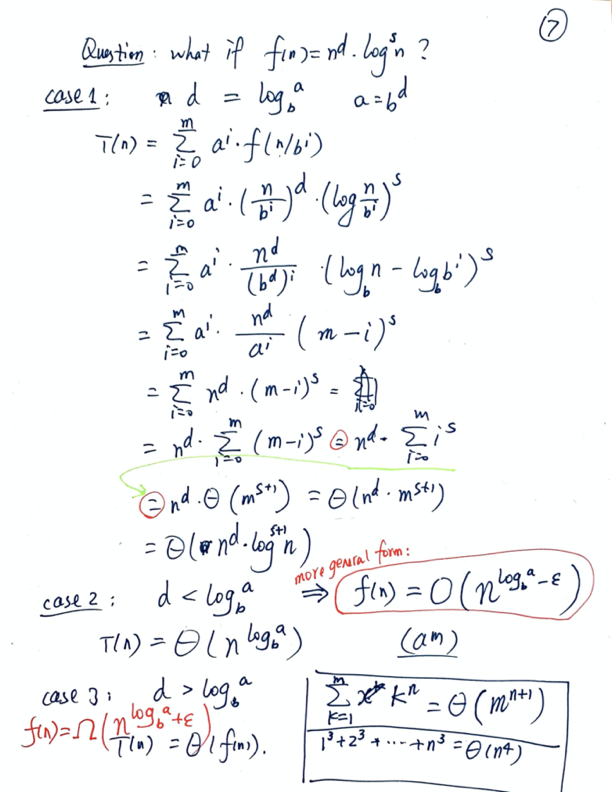 7
Question: what if f(n) = n^d · log^s n ?
case 1: d = log_b a a = b^d
T(n) = Σ_{i=0}^{m} a^i · f(n/b^i)
= Σ_{i=0}^{m} a^i · (n/b^i)^d · (log n/b^i)^s
= Σ_{i=0}^{m} a^i · n^d/(b^d)^i · (log_b n - log_b b^i)^s
= Σ_{i=0}^{m} a^i · n^d/a^i (m - i)^s
= Σ_{i=0}^{m} n^d · (m - i)^s =
= n^d · Σ_{i=0}^{m} (m - i)^s = n^d · Σ_{i=0}^{m} i^s
= n^d · Θ(m^{s+1}) = Θ(n^d · m^{s+1})
= Θ(n^d · log^{s+1} n)
more general form:
case 2: d < log_b a ⇒ f(n) = O(n^{log_b a - ε})
T(n) = Θ(n^{log_b a}) (a^m)
case 3: d > log_b a
f(n) = Ω(n^{log_b a + ε})
T(n) = Θ(f(n)).
Σ_{k=1}^{m} k^n = Θ(m^{n+1})
1^3 + 2^3 + ··· + n^3 = Θ(n^4)